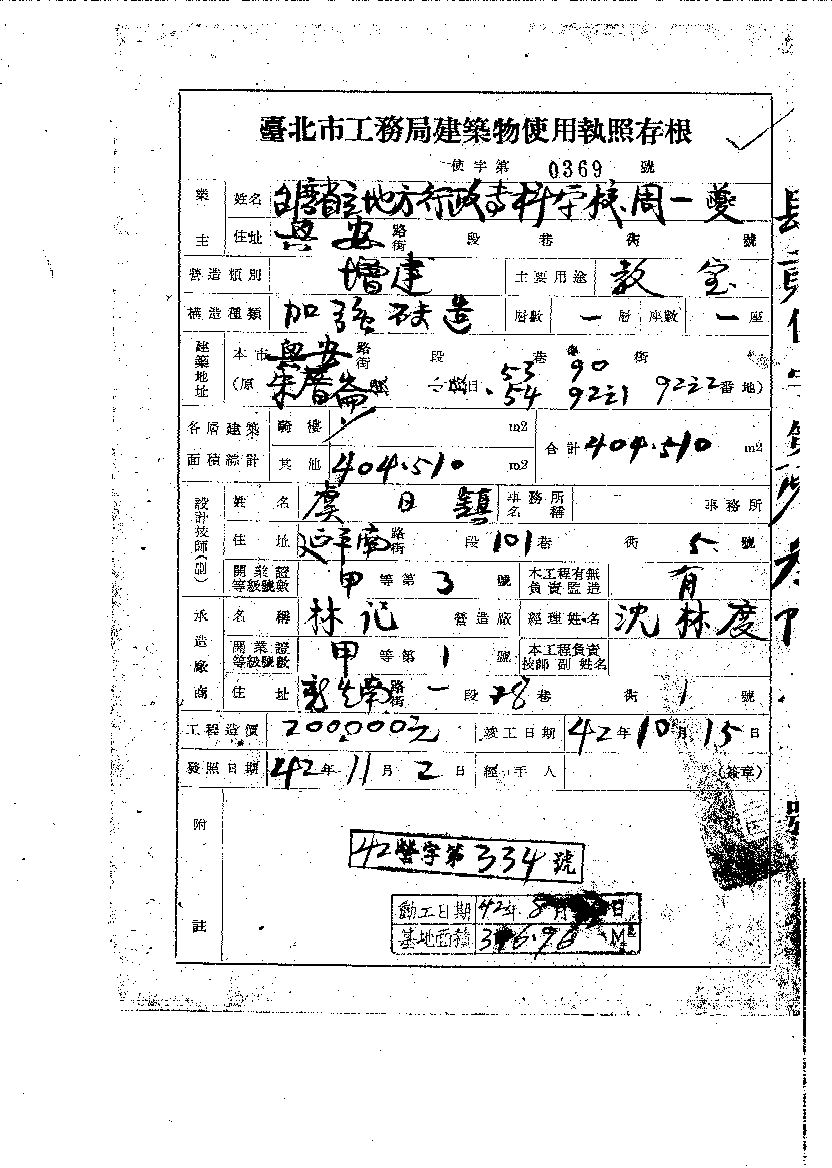 臺北市工務局建築物使用執照存根
使字第 0369 號
業主 姓名 台灣省立地方行政專科學校 周一夔
住址 興安 路街 段 巷 衖 號
營造類別 增建 主要用途 教室
構造種類 加強磚造 層數 一層 座數 一座
建築地址 本市 興安 路街 段 巷 衖 號
(原 朱厝崙 53 90
54 92之1 92之2 番地)
各層建築面積總計 騎樓 m2 合計 404.510 m2
其他 404.510 m2
設計技師(副) 姓名 虞日鎮 事務所名稱 事務所
住址 延平南 路街 段 101巷 衖 5 號
開業證等級號數 甲 等第 3 號 本工程有無負責監造 有
承造廠商 名稱 林記 營造廠 經理姓名 沈林度
開業證等級號數 甲 等第 1 號 本工程負責技師副姓名
住址 新生南 路街 一段 78巷 衖 1 號
工程造價 200,000元 竣工日期 42年10月15日
發照日期 42年11月2日 經手人 (簽章)
附註
42營字第334號
動工日期 42年8月 日
基地面積 M²